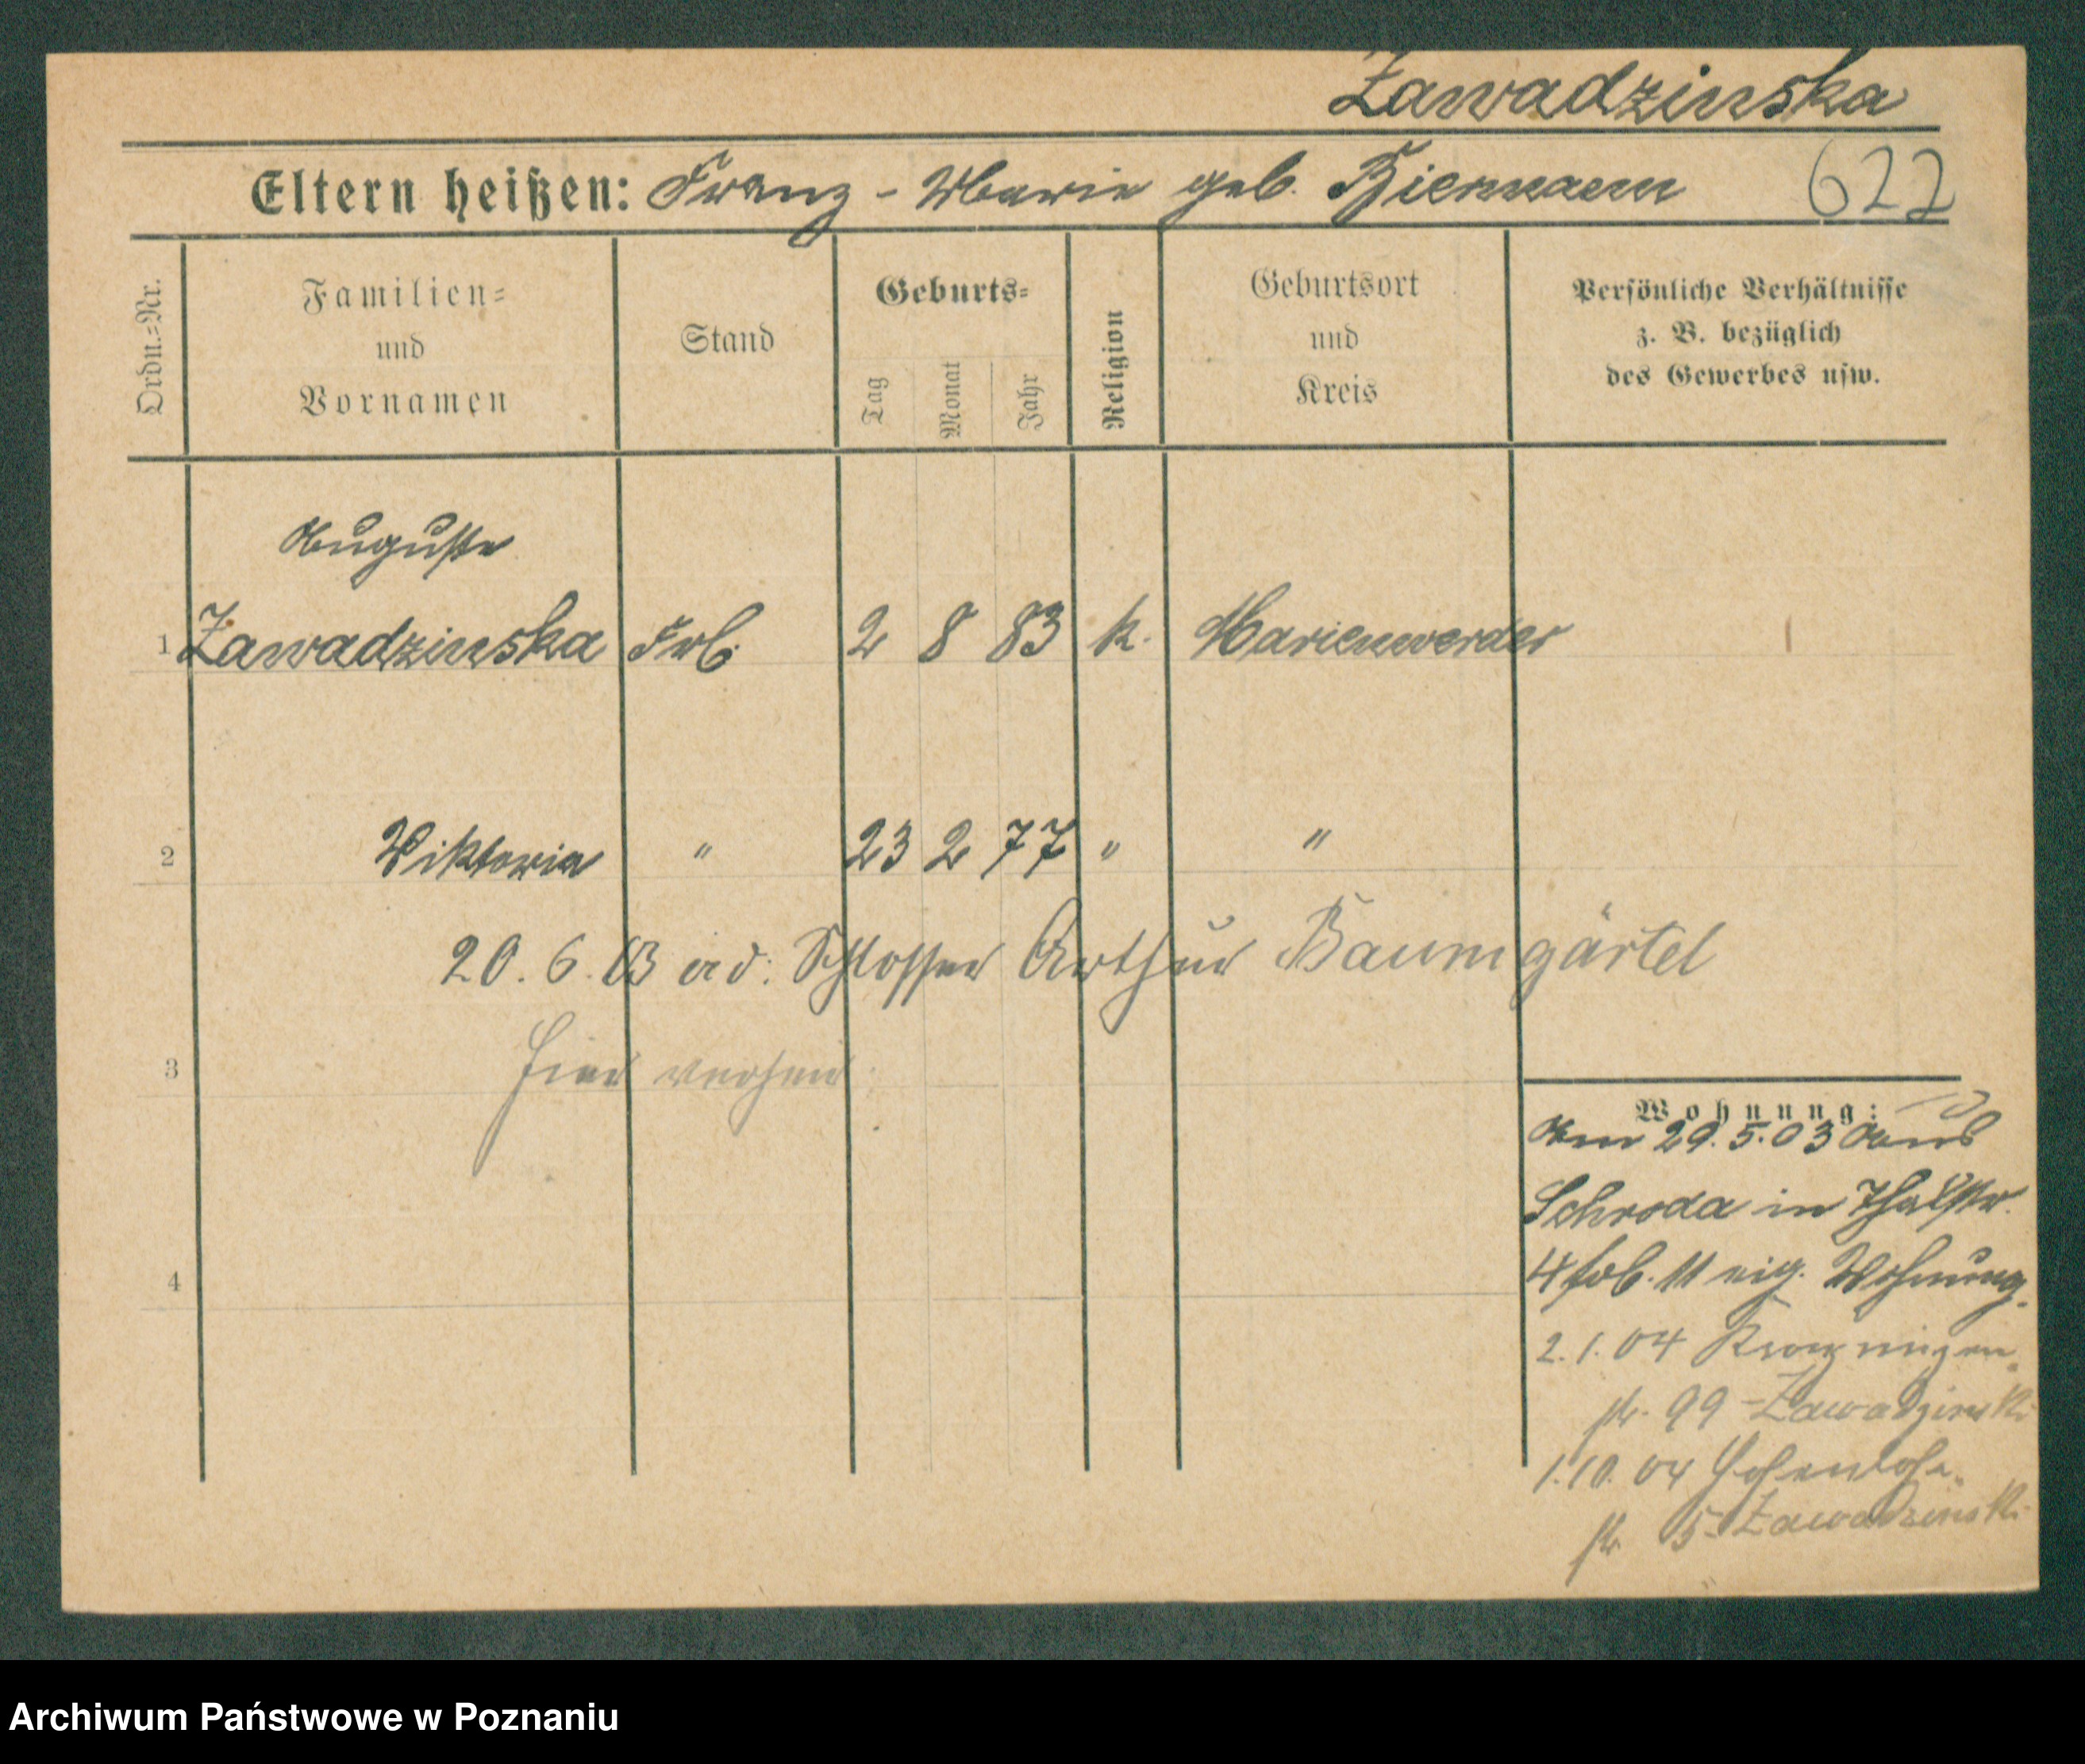 Zawadzinska
Eltern heißen: Franz - Marie geb. Biermann
622
Ordn.=Nr.
Familien=
und
Vornamen
Stand
Geburts=
Tag
Monat
Jahr
Religion
Geburtsort
und
Kreis
Persönliche Verhältnisse
z. B. bezüglich
des Gewerbes usw.
Auguste
1 Zawadzinska Frl. 2 8 83 k. Marienwerder
2 Viktoria " 23 2 77 " "
20. 6. 03 Schlosser Arthur Baumgärtel
hier verh
3
4
Wohnung:
Am 29. 5. 03 aus
Schroda in Thalstr.
4 eig. Wohnung.
2. 1. 04 Kronprinzen
str. 99 - Zawadzinski
1. 10. 04 Hohenlohe
str. 5 - Zawadzinski
Archiwum Państwowe w Poznaniu